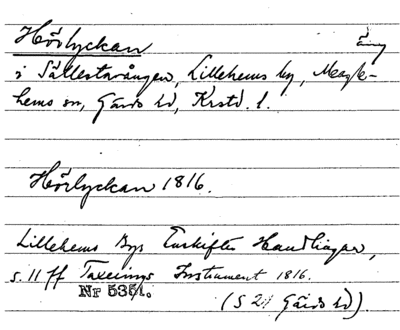 Hörlyckan äng
i Sätlestvången, Lillehems by, Meagle-
hems sn, Gärds hd, Krstd. l.
Hörlyckan 1816.
Lillehems Bys Enskiftes Handlingar,
s. 11 ff Taxerings Instrument 1816.
Nr 535/1.
(S 27 Gärds hd).